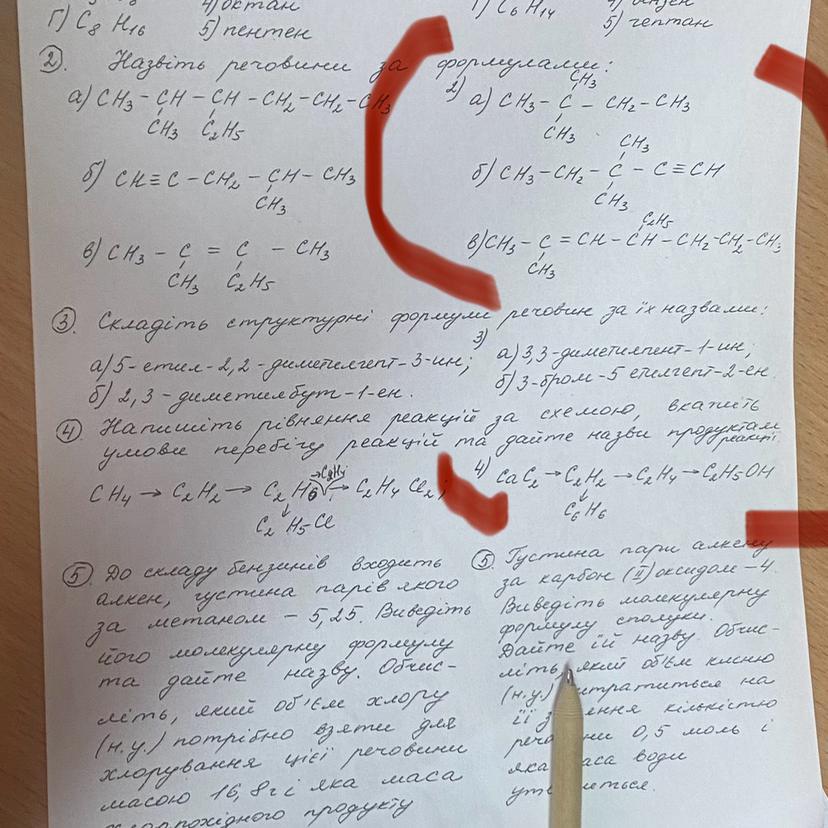 Г) C8 H16 4) октан
5) пентен
Г) C6 H14
5) гептан
2. Назвіть речовини за формулами:
а) CH3 – CH – CH – CH2 – CH2 – CH3
CH3 C2H5
б) CH ≡ C – CH2 – CH – CH3
CH3
в) CH3 – C = C – CH3
CH3 C2H5
2)
CH3
а) CH3 – C – CH2 – CH3
CH3
CH3
б) CH3 – CH2 – C – C ≡ CH
CH3
C2H5
в) CH3 – C = CH – CH – CH2 – CH2 – CH3
CH3
3. Складіть структурні формули речовин за їх назвами:
а) 5-етил-2,2-диметилгепт-3-ин;
б) 2,3-диметилбут-1-ен.
3)
а) 3,3-диметилпент-1-ин;
б) 3-бром-5 етилгепт-2-ен
4. Напишіть рівняння реакцій за схемою, вкажіть
умови перебігу реакцій та дайте назви продуктам
реакції
→ C2H4
CH4 → C2H2 → C2 H6 → C2H4 Cl2;
↓
C2 H5Cl
4) CaC2 → C2H2 → C2H4 → C2H5OH
↓
C6H6
5. До складу бензинів входить
алкен, густина парів якого
за метаном – 5,25. Виведіть
його молекулярну формулу
та дайте назву. Обчис-
літь, який об'єм хлору
(н.у.) потрібно взяти для
хлорування цієї речовини
масою 16,8г і яка маса
хлорпохідного продукту
5. Густина пари алкену
за карбон (II) оксидом – 4.
Виведіть молекулярну
формулу сполуки.
Дайте їй назву. Обчис-
літь, який об'єм кисню
(н.у.) на
її кількістю
0,5 моль і
яка води